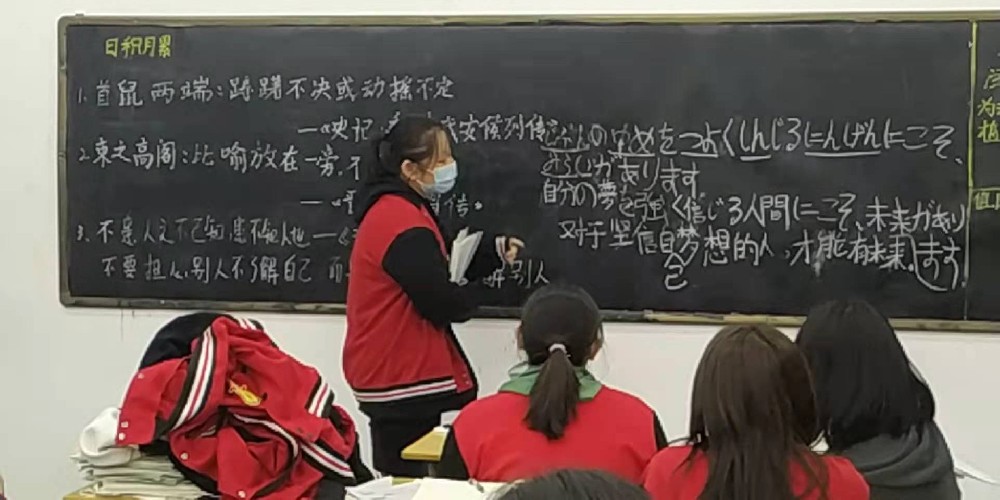 日积月累
1. 首鼠两端：踌躇不决或动摇不定
—《史记·
安侯列传
2. 束之高阁：比喻放在一旁，不
—《
传》
3. 不患人之不己知，患不知人也—《
不要担心别人不了解自己 而
解别人
じぶんのゆめをつよくしんじるにんげんにこそ、
みらいがあります。
自分の夢を強く信じる人間にこそ、未来があり
ます。
对于坚信自己梦想的人，才能有未来。
为
植
值